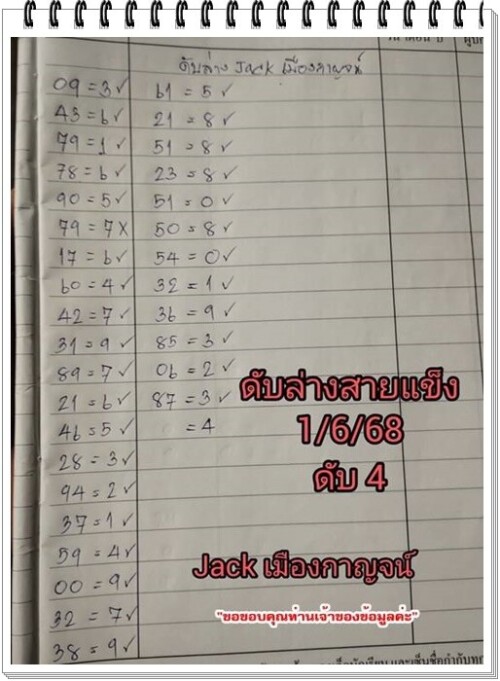 ดับล่าง Jack เมืองกาญจน์
09 = 3 ✓
43 = 6 ✓
79 = 1 ✓
78 = 6 ✓
90 = 5 ✓
79 = 7 X
17 = 6 ✓
60 = 4 ✓
42 = 7 ✓
31 = 9 ✓
89 = 7 ✓
21 = 6 ✓
46 = 5 ✓
28 = 3 ✓
94 = 2 ✓
37 = 1 ✓
59 = 4 ✓
00 = 9 ✓
32 = 7 ✓
38 = 9 ✓
61 = 5 ✓
21 = 8 ✓
51 = 8 ✓
23 = 8 ✓
51 = 0 ✓
50 = 8 ✓
54 = 0 ✓
32 = 1 ✓
36 = 9 ✓
85 = 3 ✓
06 = 2 ✓
87 = 3 ✓
= 4
ดับล่างสายแข็ง
1/6/68
ดับ 4
Jack เมืองกาญจน์
"ขอขอบคุณท่านเจ้าของข้อมูลค่ะ"